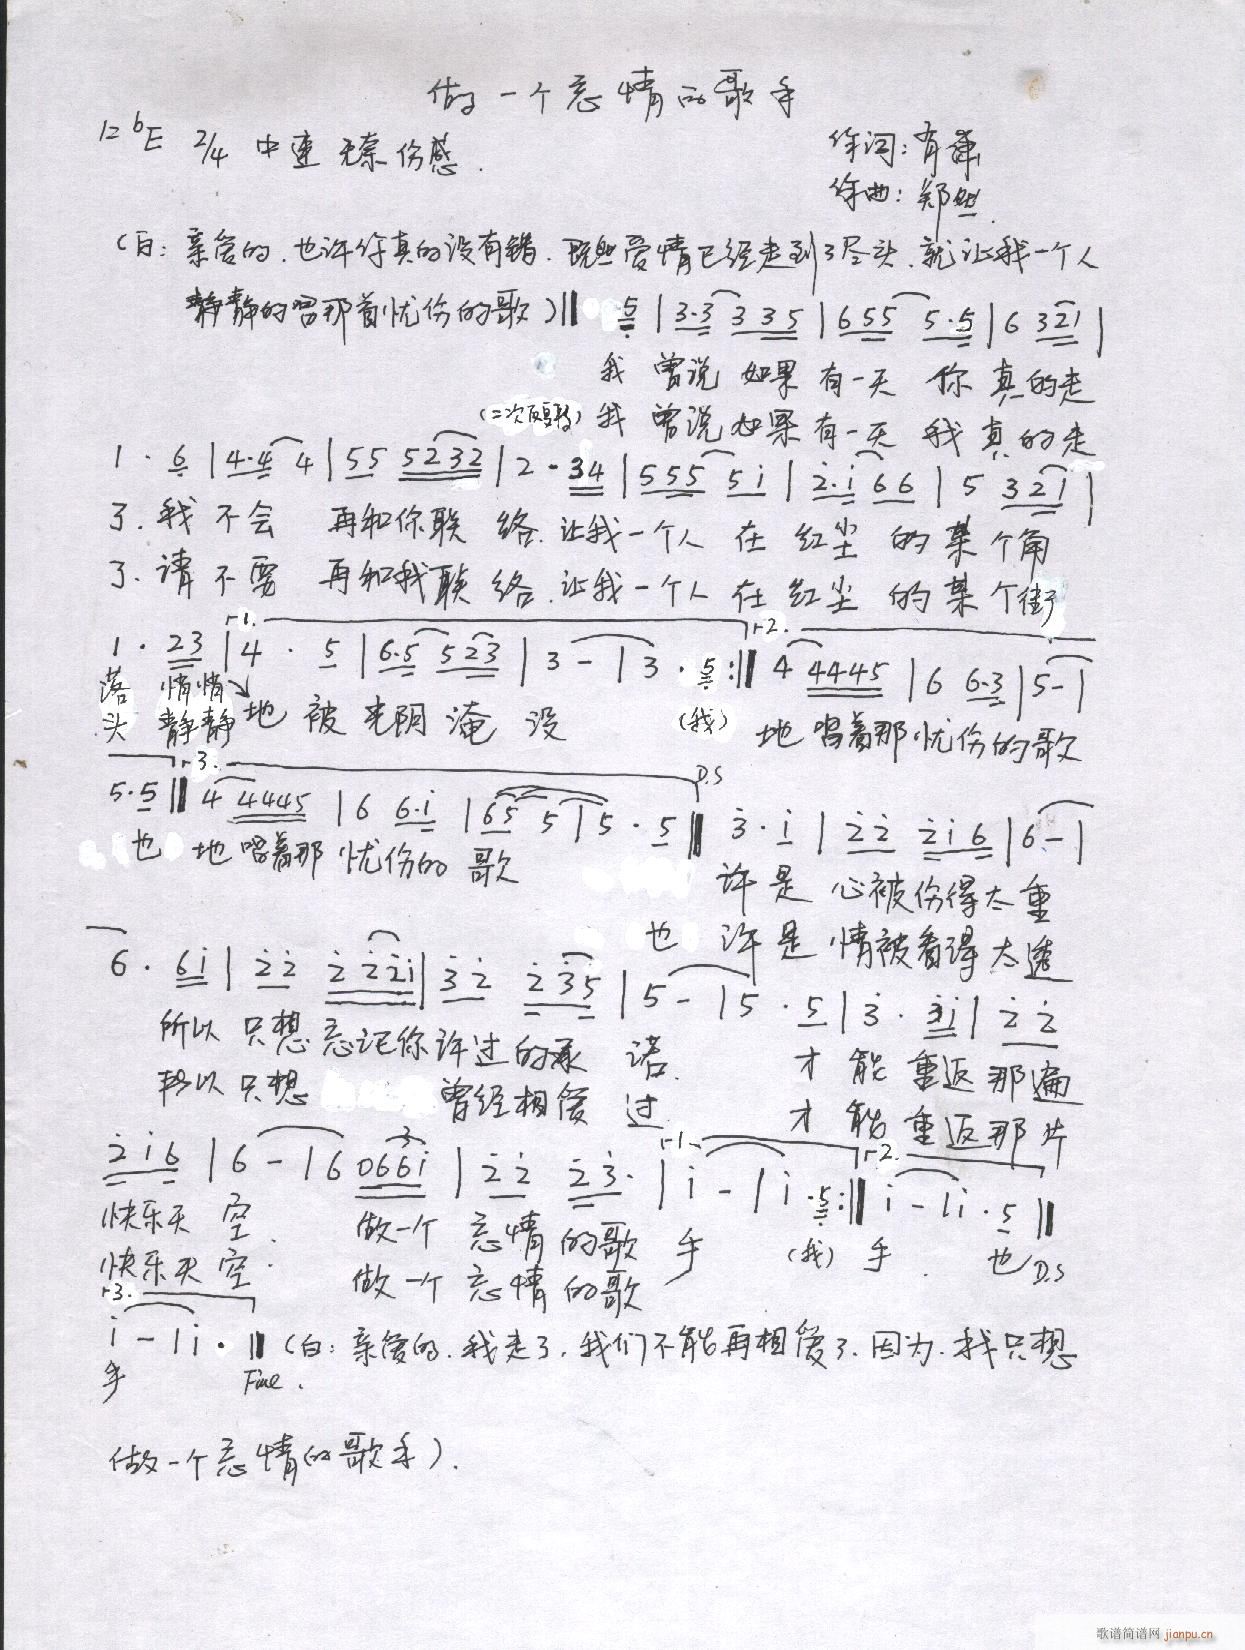 做一个忘情的歌手
1=bE 2/4 中速 无奈伤感.
作词:有
作曲:郑然
(白:亲爱的.也许你真的没有错.既然爱情已经走到了尽头.就让我一个人
静静的唱那首忧伤的歌)‖ 5 | 3·3 3 3 5 | 6 5 5 5·5 | 6 3 2 1 |
我 曾说 如果 有一天 你 真的走
(二次反复转) 我 曾说如果有一天 我真的走
1 · 6 | 4·4 4 | 5 5 5 2 3 2 | 2 · 3 4 | 5 5 5 5 i | 2·i 6 6 | 5 3 2 1 |
了.我 不会 再和你联 络.让我一个人 在 红尘 的某个角
了.请 不要 再和我联 络.让我一个人 在红尘 的某个街
1 · 2 3 | 4 · 5 | 6·5 5 2 3 | 3 - | 3 · 5 :‖ 4 4 4 4 5 | 6 6·3 | 5 - |
落 悄悄 地 被 光阴 淹 没 (我) 地 唱着那忧伤的歌
头 静静
5·5 ‖ 4 4 4 4 5 | 6 6·i | 6 5 5 | 5 · 5 ‖ 3 · i | 2 2 2 i 6 | 6 - |
1. 2. 3. D.S
也 地唱着那 忧伤的 歌 许是 心被伤得太重
也 许是 情被看得太透
6 · 6 i | 2 2 2 2 2 i | 3 2 2 3 5 | 5 - | 5 · 5 | 3 · 3 i | 2 2
所以 只想 忘记你许过的承 诺. 才 能 重返那遍
所以只想 曾经相爱 过. 才 能重返那片
2 i 6 | 6 - | 6 0 6 6 i | 2 2 2 3· | i - | i · 5 :‖ i - | i · 5 ‖
快乐天 空. 做一个 忘情的歌 手 (我) 手 . 也 D.S
快乐天空. 做一个 忘情的歌
i - | i · ‖ (白:亲爱的.我走了.我们不能再相爱了.因为.我只想
手 Fine.
做一个忘情的歌手).
歌谱简谱网 jianpu.cn